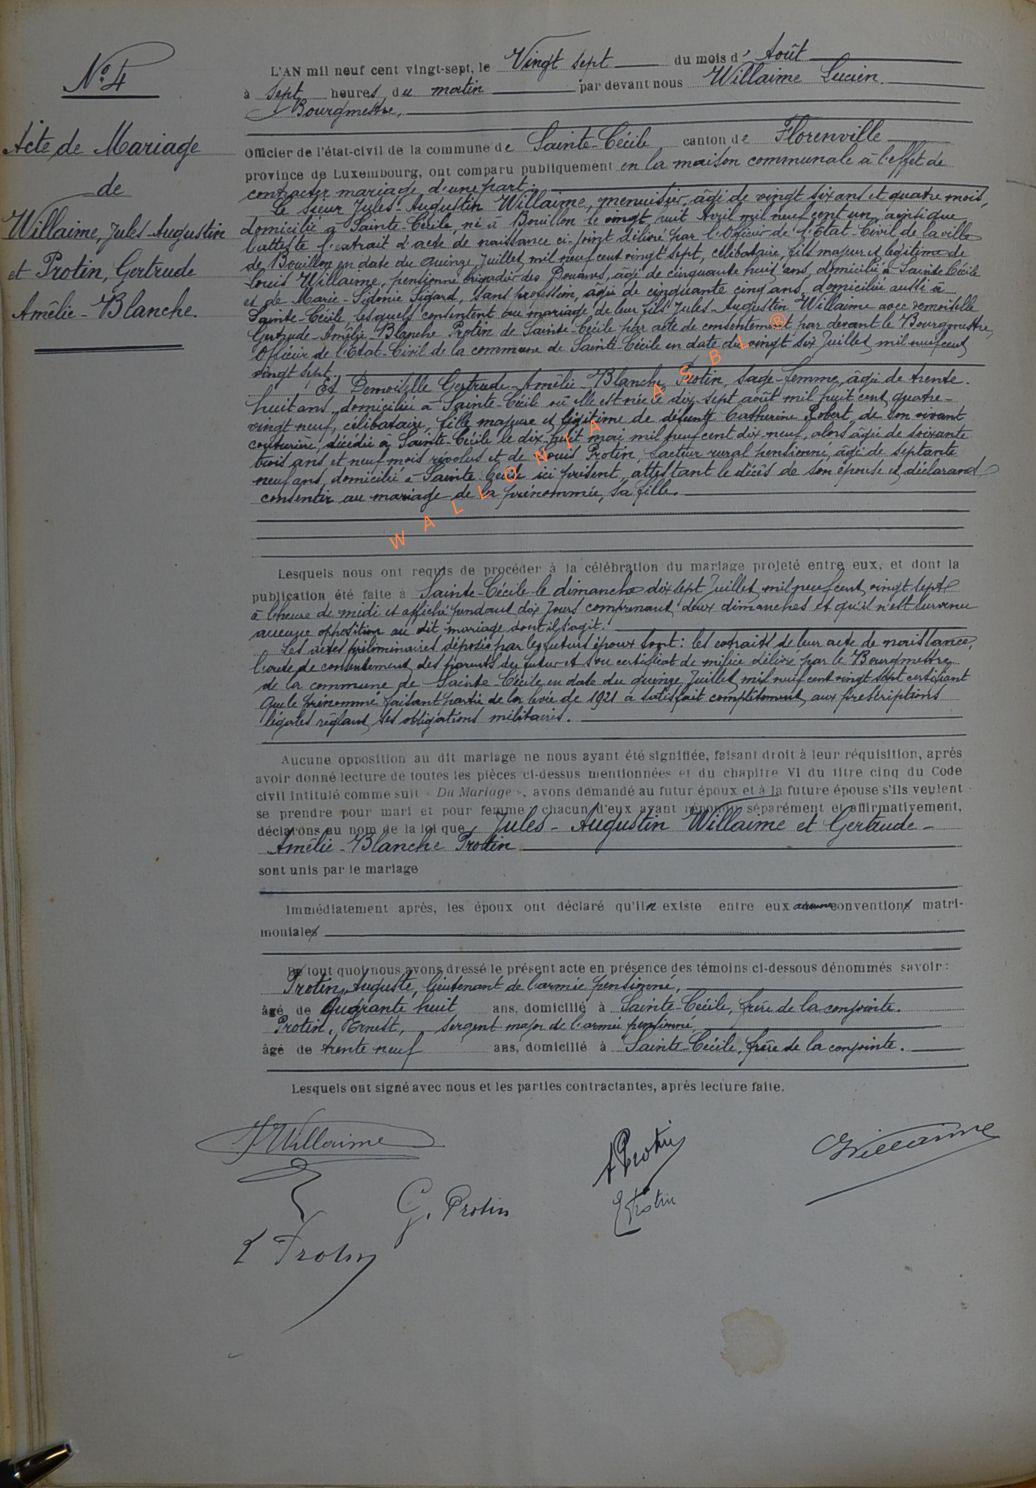 N° 4
Acte de Mariage
de
Willaime, Jules Augustin
et Protin, Gertrude
Amélie-Blanche.
L'AN mil neuf cent vingt-sept, le Vingt sept du mois d' Août
à sept heures, du matin par devant nous Willaime Lucien
Bourgmestre,
Officier de l'état-civil de la commune de Sainte-Cécile canton de Florenville
province de Luxembourg, ont comparu publiquement en la maison communale à l'effet de
contracter mariage d'une part:
Le sieur Jules-Augustin Willaime, menuisier, âgé de vingt six ans et quatre mois,
domicilié à Sainte-Cécile, né à Bouillon le vingt huit Avril mil neuf cent un, ainsi que
l'atteste l'extrait d'acte de naissance ci-joint délivré par l'Officier de l'Etat-Civil de la ville
de Bouillon en date du quinze Juillet mil neuf cent vingt sept, célibataire, fils majeur et légitime de
Louis Willaime, pensionné brigadier des Douanes, âgé de cinquante huit ans, domicilié à Sainte Cécile
et de Marie-Sidonie Sigard, sans profession, âgée de cinquante cinq ans, domiciliée aussi à
Sainte-Cécile lesquels consentent au mariage de leur fils Jules-Augustin Willaime avec Demoiselle
Gertrude-Amélie-Blanche Protin de Sainte-Cécile par acte de consentement par devant le Bourgmestre,
Officier de l'Etat-Civil de la commune de Sainte-Cécile en date du vingt six Juillet mil neuf cent
vingt sept.
Et Demoiselle Gertrude-Amélie-Blanche Protin, sage-femme, âgée de trente-
huit ans, domiciliée à Sainte-Cécile où elle est née le dix sept août mil huit cent quatre-
vingt neuf, célibataire, fille majeure et légitime de défunte Catherine Robert, de son vivant
couturière, décédée à Sainte-Cécile le dix huit mai mil neuf cent dix neuf, alors âgée de soixante
trois ans et neuf mois révolus et de Louis Protin, facteur rural pensionné, âgé de septante
neuf ans, domicilié à Sainte Cécile ici présent, attestant le décès de son épouse et déclarant
consentir au mariage de la prénommée, sa fille.
WALLONIA ASBL ®
Lesquels nous ont requis de procéder à la célébration du mariage projeté entre eux, et dont la
publication été faite à Sainte-Cécile le dimanche dix sept Juillet mil neuf cent vingt sept
à l'heure de midi et affiché pendant dix jours comprenant deux dimanches et qu'il n'est survenu
aucune opposition au dit mariage dont il s'agit.
Les actes préliminaires déposés par les futurs époux sont: les extraits de leur acte de naissance,
l'acte de consentement des parents du futur et son certificat de milice délivré par le Bourgmestre
de la commune de Sainte-Cécile en date du quinze Juillet mil neuf cent vingt sept certifiant
que le prénommé faisant partie de la levée de 1921 a satisfait complètement aux prescriptions
légales réglant ses obligations militaires.
Aucune opposition au dit mariage ne nous ayant été signifiée, faisant droit à leur réquisition, après
avoir donné lecture de toutes les pièces ci-dessus mentionnées et du chapitre VI du titre cinq du Code
civil intitulé comme suit « Du Mariage », avons demandé au futur époux et à la future épouse s'ils veulent
se prendre pour mari et pour femme, chacun d'eux ayant répondu séparément et affirmativement,
déclarons au nom de la loi que Jules-Augustin Willaime et Gertrude-
Amélie-Blanche Protin
sont unis par le mariage
Immédiatement après, les époux ont déclaré qu'il n'existe entre eux aucune conventions matri-
moniales
De tout quoi nous avons dressé le présent acte en présence des témoins ci-dessous dénommés savoir:
Protin, Auguste, lieutenant de l'armée pensionné,
âgé de Quarante huit ans, domicilié à Sainte-Cécile, frère de la conjointe.
Protin, Ernest, sergent major de l'armée pensionné
âgé de trente neuf ans, domicilié à Sainte-Cécile, frère de la conjointe.
Lesquels ont signé avec nous et les parties contractantes, après lecture faite.
J Willaime
A Protin
Willaime
G. Protin
E Protin
L Protin